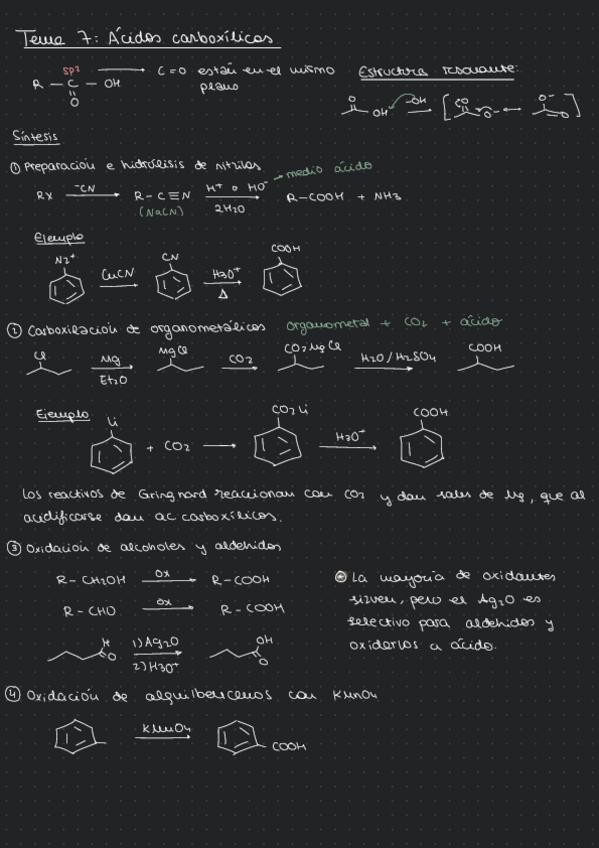 Tema 7: Ácidos carboxílicos
sp2
R — C — OH
O
C=O están en el mismo
plano
Estructura resonante:
OH
-OH
O
O-
O-
O
Síntesis
① Preparación e hidrólisis de nitrilos
medio ácido
RX
-CN
R-C≡N
(NaCN)
H+ o HO-
2H2O
R-COOH + NH3
Ejemplo
N2+
CuCN
CN
H3O+
Δ
COOH
② Carboxilación de organometálicos
Organometal + CO2 + ácido
Cl
Mg
Et2O
MgCl
CO2
CO2MgCl
H2O/H2SO4
COOH
Ejemplo
Li
+ CO2
CO2Li
H3O+
COOH
Los reactivos de Gringnard reaccionan con CO2 y dan sales de Mg, que al
acidificarse dan ac carboxílicos.
③ Oxidación de alcoholes y aldehidos
R-CH2OH
ox
R-COOH
R-CHO
ox
R-COOH
H
O
1) Ag2O
2) H3O+
OH
O
La mayoría de oxidantes
sirven, pero el Ag2O es
selectivo para aldehidos y
oxidarlos a ácido.
④ Oxidación de alquilbencenos con KMnO4
KMnO4
COOH